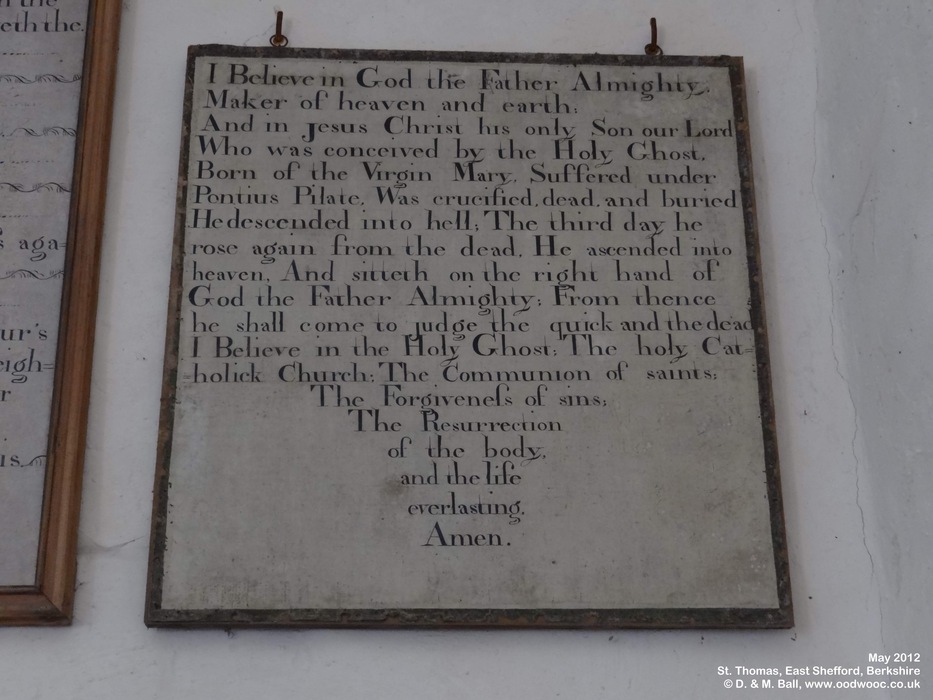 n the
eth the.
s aga=
ur's
eigh=
r
is.
I Believe in God the Father Almighty,
Maker of heaven and earth:
And in Jesus Christ his only Son our Lord
Who was conceived by the Holy Ghost,
Born of the Virgin Mary, Suffered under
Pontius Pilate, Was crucified, dead, and buried
He descended into hell; The third day he
rose again from the dead, He ascended into
heaven, And sitteth on the right hand of
God the Father Almighty; From thence
he shall come to judge the quick and the dead
I Believe in the Holy Ghost; The holy Cat=
=holick Church; The Communion of saints;
The Forgiveneſs of sins;
The Resurrection
of the body,
and the life
everlasting.
Amen.
May 2012
St. Thomas, East Shefford, Berkshire
© D. & M. Ball, www.oodwooc.co.uk